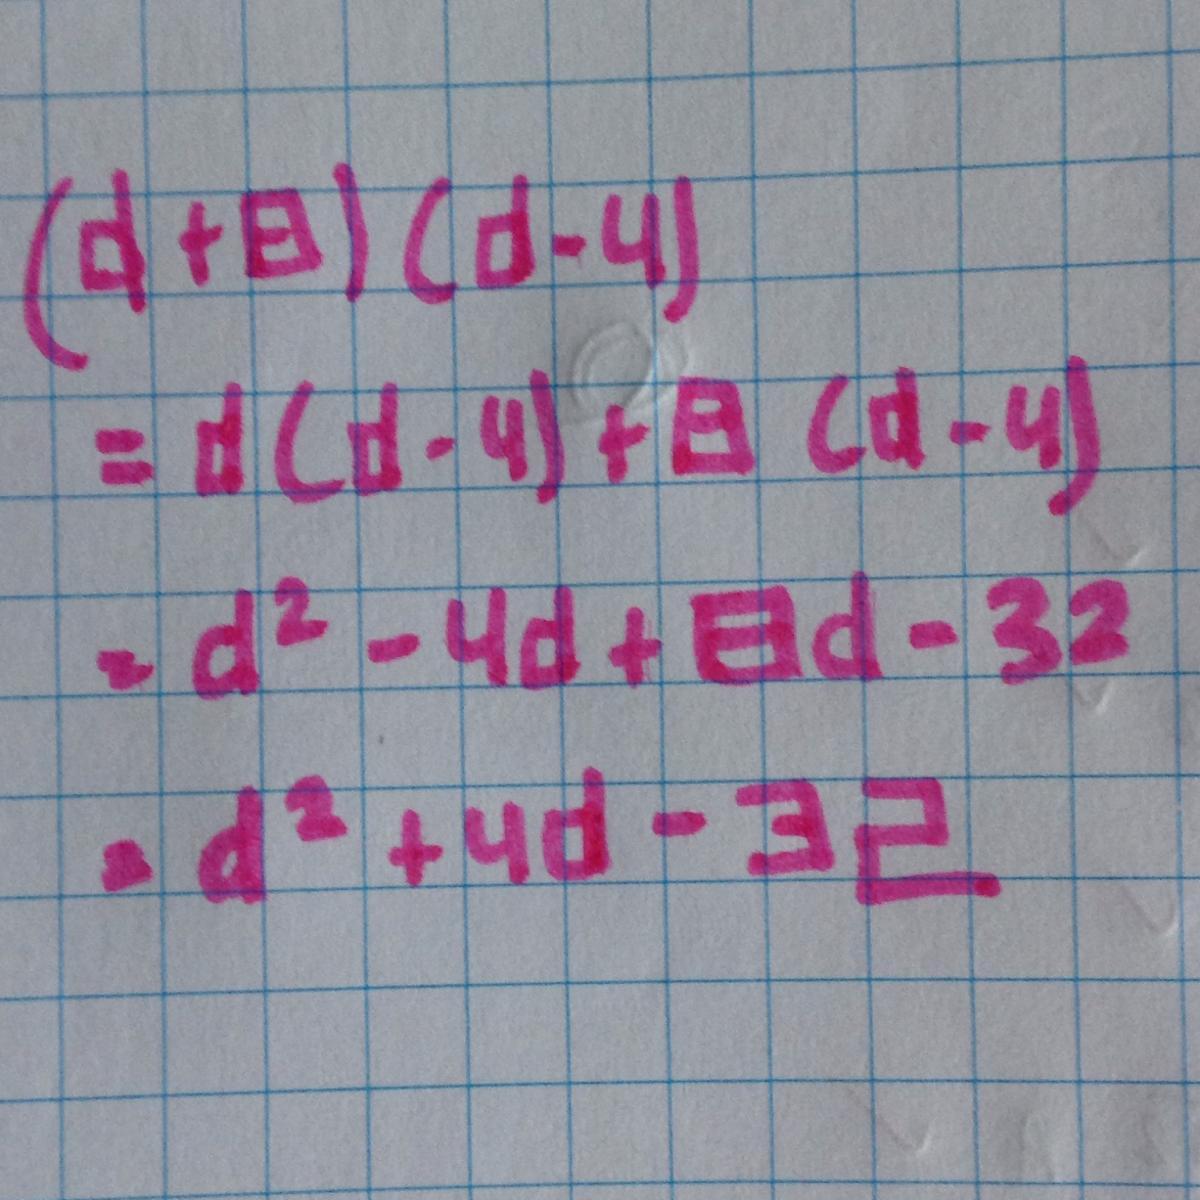 (d+8)(d-4)
=d(d-4)+8(d-4)
=d²-4d+8d-32
=d²+4d-32